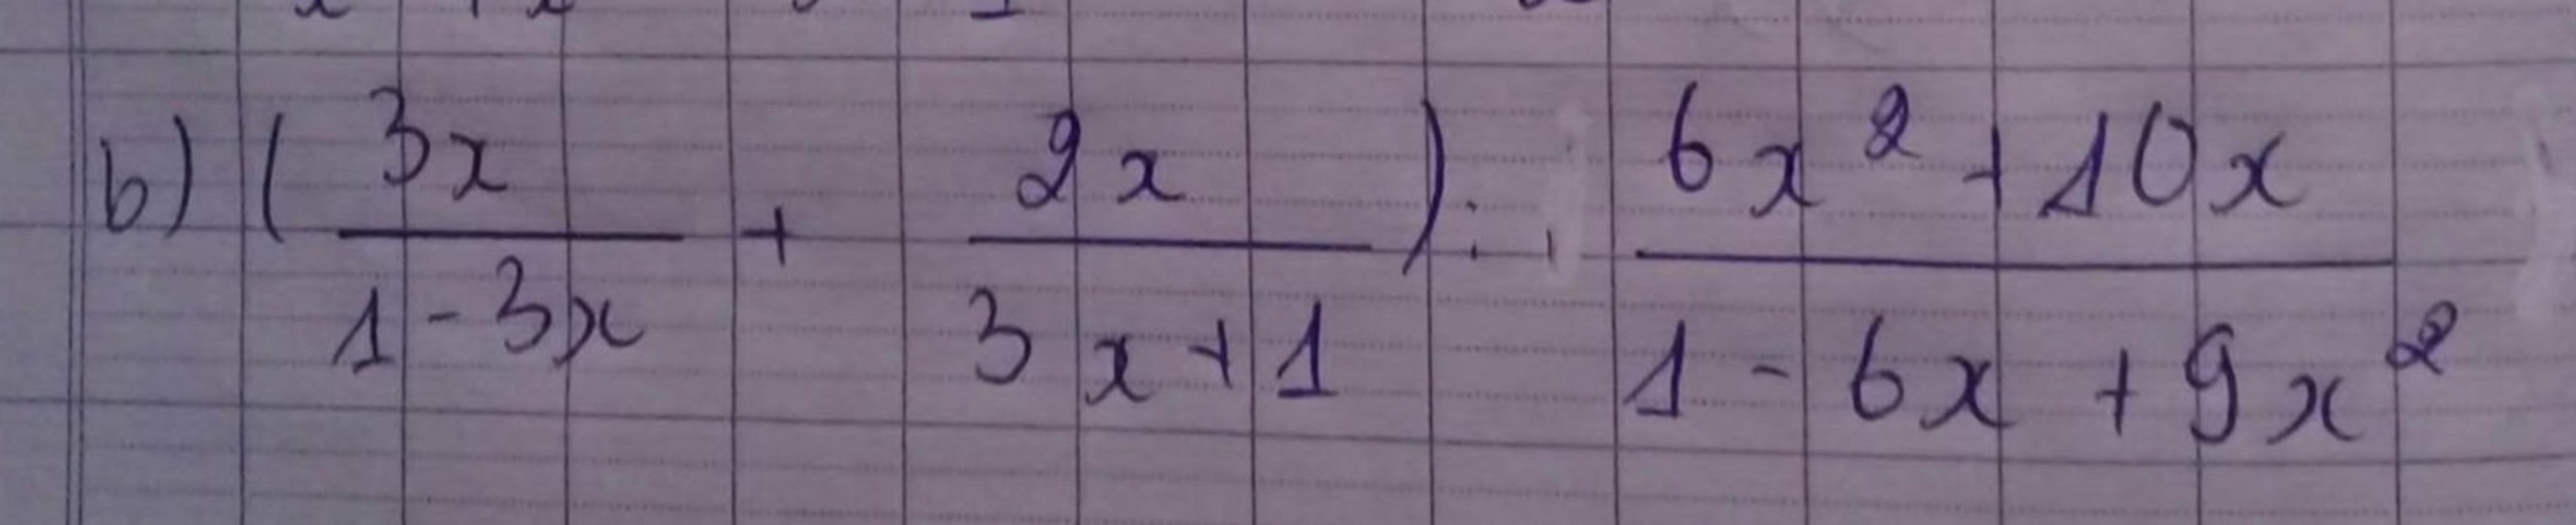 b) ( 3x / 1 - 3x + 2x / 3x + 1 ) : 6x² + 10x / 1 - 6x + 9x²